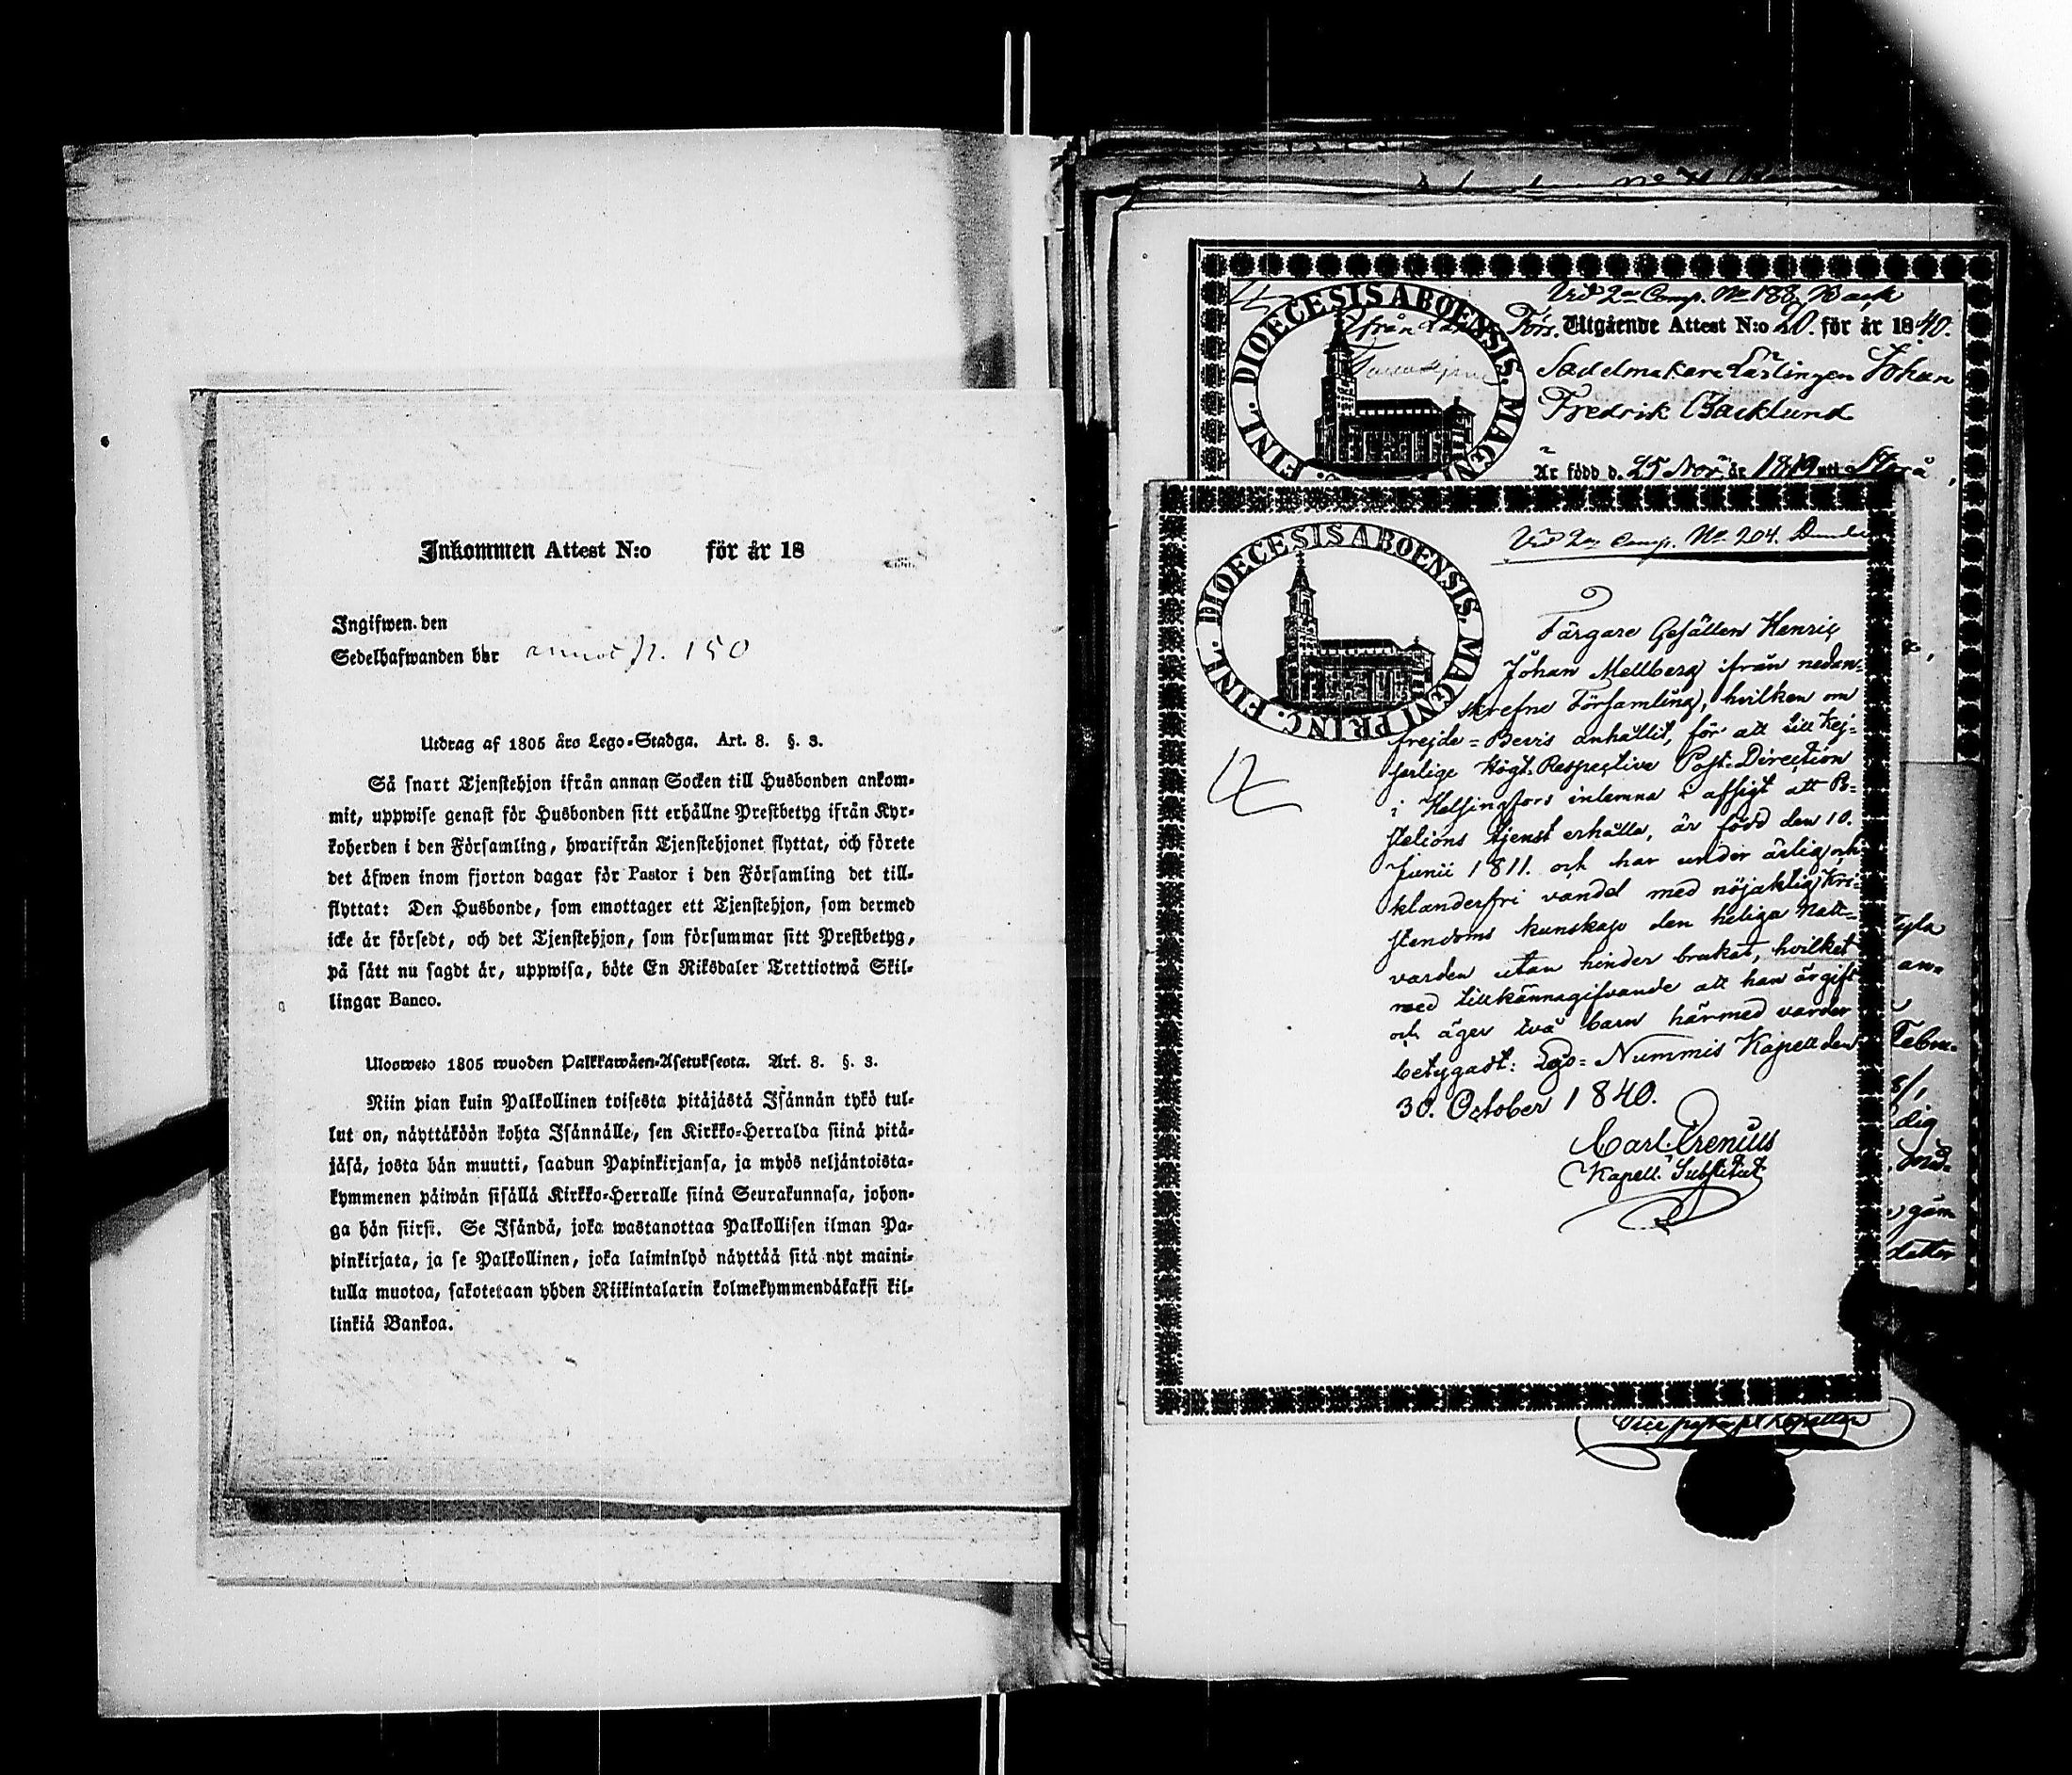 Inkommen Attest N:o för år 18
Ingifwen den
Sedelhafwanden bor annot fl. 150
Utdrag af 1805 års Lego-Stadga. Art. 8. §. 3.
Så snart Tjenstehjon ifrån annan Socken till Husbonden ankom-
mit, uppwise genast för Husbonden sitt erhållne Prestbetyg ifrån Kyr-
koherden i den Församling, hwarifrån Tjenstehjonet flyttat, och förete
det äfwen inom fjorton dagar för Pastor i den Församling det till-
flyttat: Den Husbonde, som emottager ett Tjenstehjon, som dermed
icke är försedt, och det Tjenstehjon, som försummar sitt Prestbetyg,
på sätt nu sagdt är, uppwisa, böte En Riksdaler Trettiotwå Skil-
lingar Banco.
Ulosweto 1805 wuoden Palkkawäen-Asetuksesta. Art. 8. §. 3.
Niin pian kuin Palkollinen toisesta pitäjästä Isännän tykö tul-
lut on, näyttäköön kohta Isännälle, sen Kirkko-Herralda siinä pitä-
jäsä, josta hän muutti, saadun Papinkirjansa, ja myös neljäntoista-
kymmenen päiwän sisällä Kirkko-Herralle siinä Seurakunnasa, johon-
ga hän siirsi. Se Isändä, joka wastanottaa Palkollisen ilman Pa-
pinkirjata, ja se Palkollinen, joka laiminlyö näyttää sitä nyt maini-
tulla muotoa, sakotetaan yhden Riikintalarin kolmekymmendäkaksi kil-
linkiä Bankoa.
Vid 2=a Comp. No 188. Back
DIOECESIS ABOENSIS. MAGNI FINL.
från
Förs. Utgående Attest N:o 20. för år 1840.
Sadelmakare Lärlingen Johan
Fredrik Backlund
Är född d. 25 Nov. år 1819 uti
DIOECESIS ABOENSIS. MAGNI PRINC. FINL.
Vid 2=a Comp. No 204.
Färgare Gesällen Henric
Johan Mellberg ifrån nedan-
skrefne Församling, hvilken om
frejde-Bevis anhållit, för att till Kej-
serlige Högt-Respective Post-Direction
i Helsingfors inlemna i afsigt att Po-
stelions tjenst erhålla, är född den 10.
Junii 1811. och har under ärlig och
klanderfri vandel med nöjaktig Kri-
stendoms kunskap den heliga Natt-
varden utan hinder brukat, hvilket
med tillkännagifvande att han är gift
och äger två barn härmed varder
betygadt: Lojo-Nummis Kapell den
30. October 1840.
Carl Orenius
Kapell. Substitut
an-
Febru-
dig